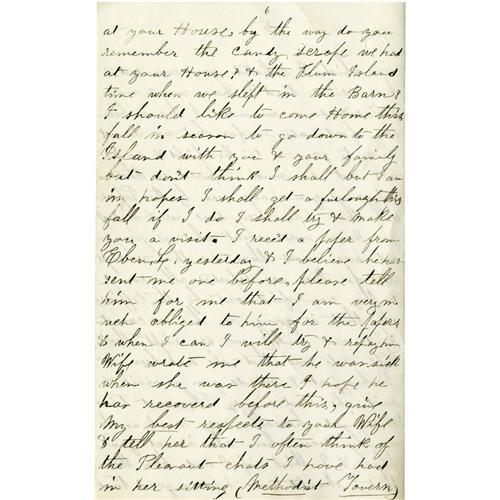 6
at your House, by the way do you
remember the Candy scrape we had
at your House? & the Plum Island
time when we slept in the Barn?
I should like to come Home this
fall in season to go down to the
Island with you & your family
but don't think I shall but I am
in hopes I shall get a furlough this
fall if I do I shall try & make
you a visit. I recd a paper from
Eben, yesterday & I believe he has
sent me one before, please tell
him for me that I am very m
uch obliged to him for the Papers
& when I can I will try & repay him
Wife wrote me that he was sick
when she was there I hope he
has recoverd before this, give
My best respects to your Wife
& tell her that I often think of
the Pleasant chats I have had
in her sitting (Methodist Tavern)